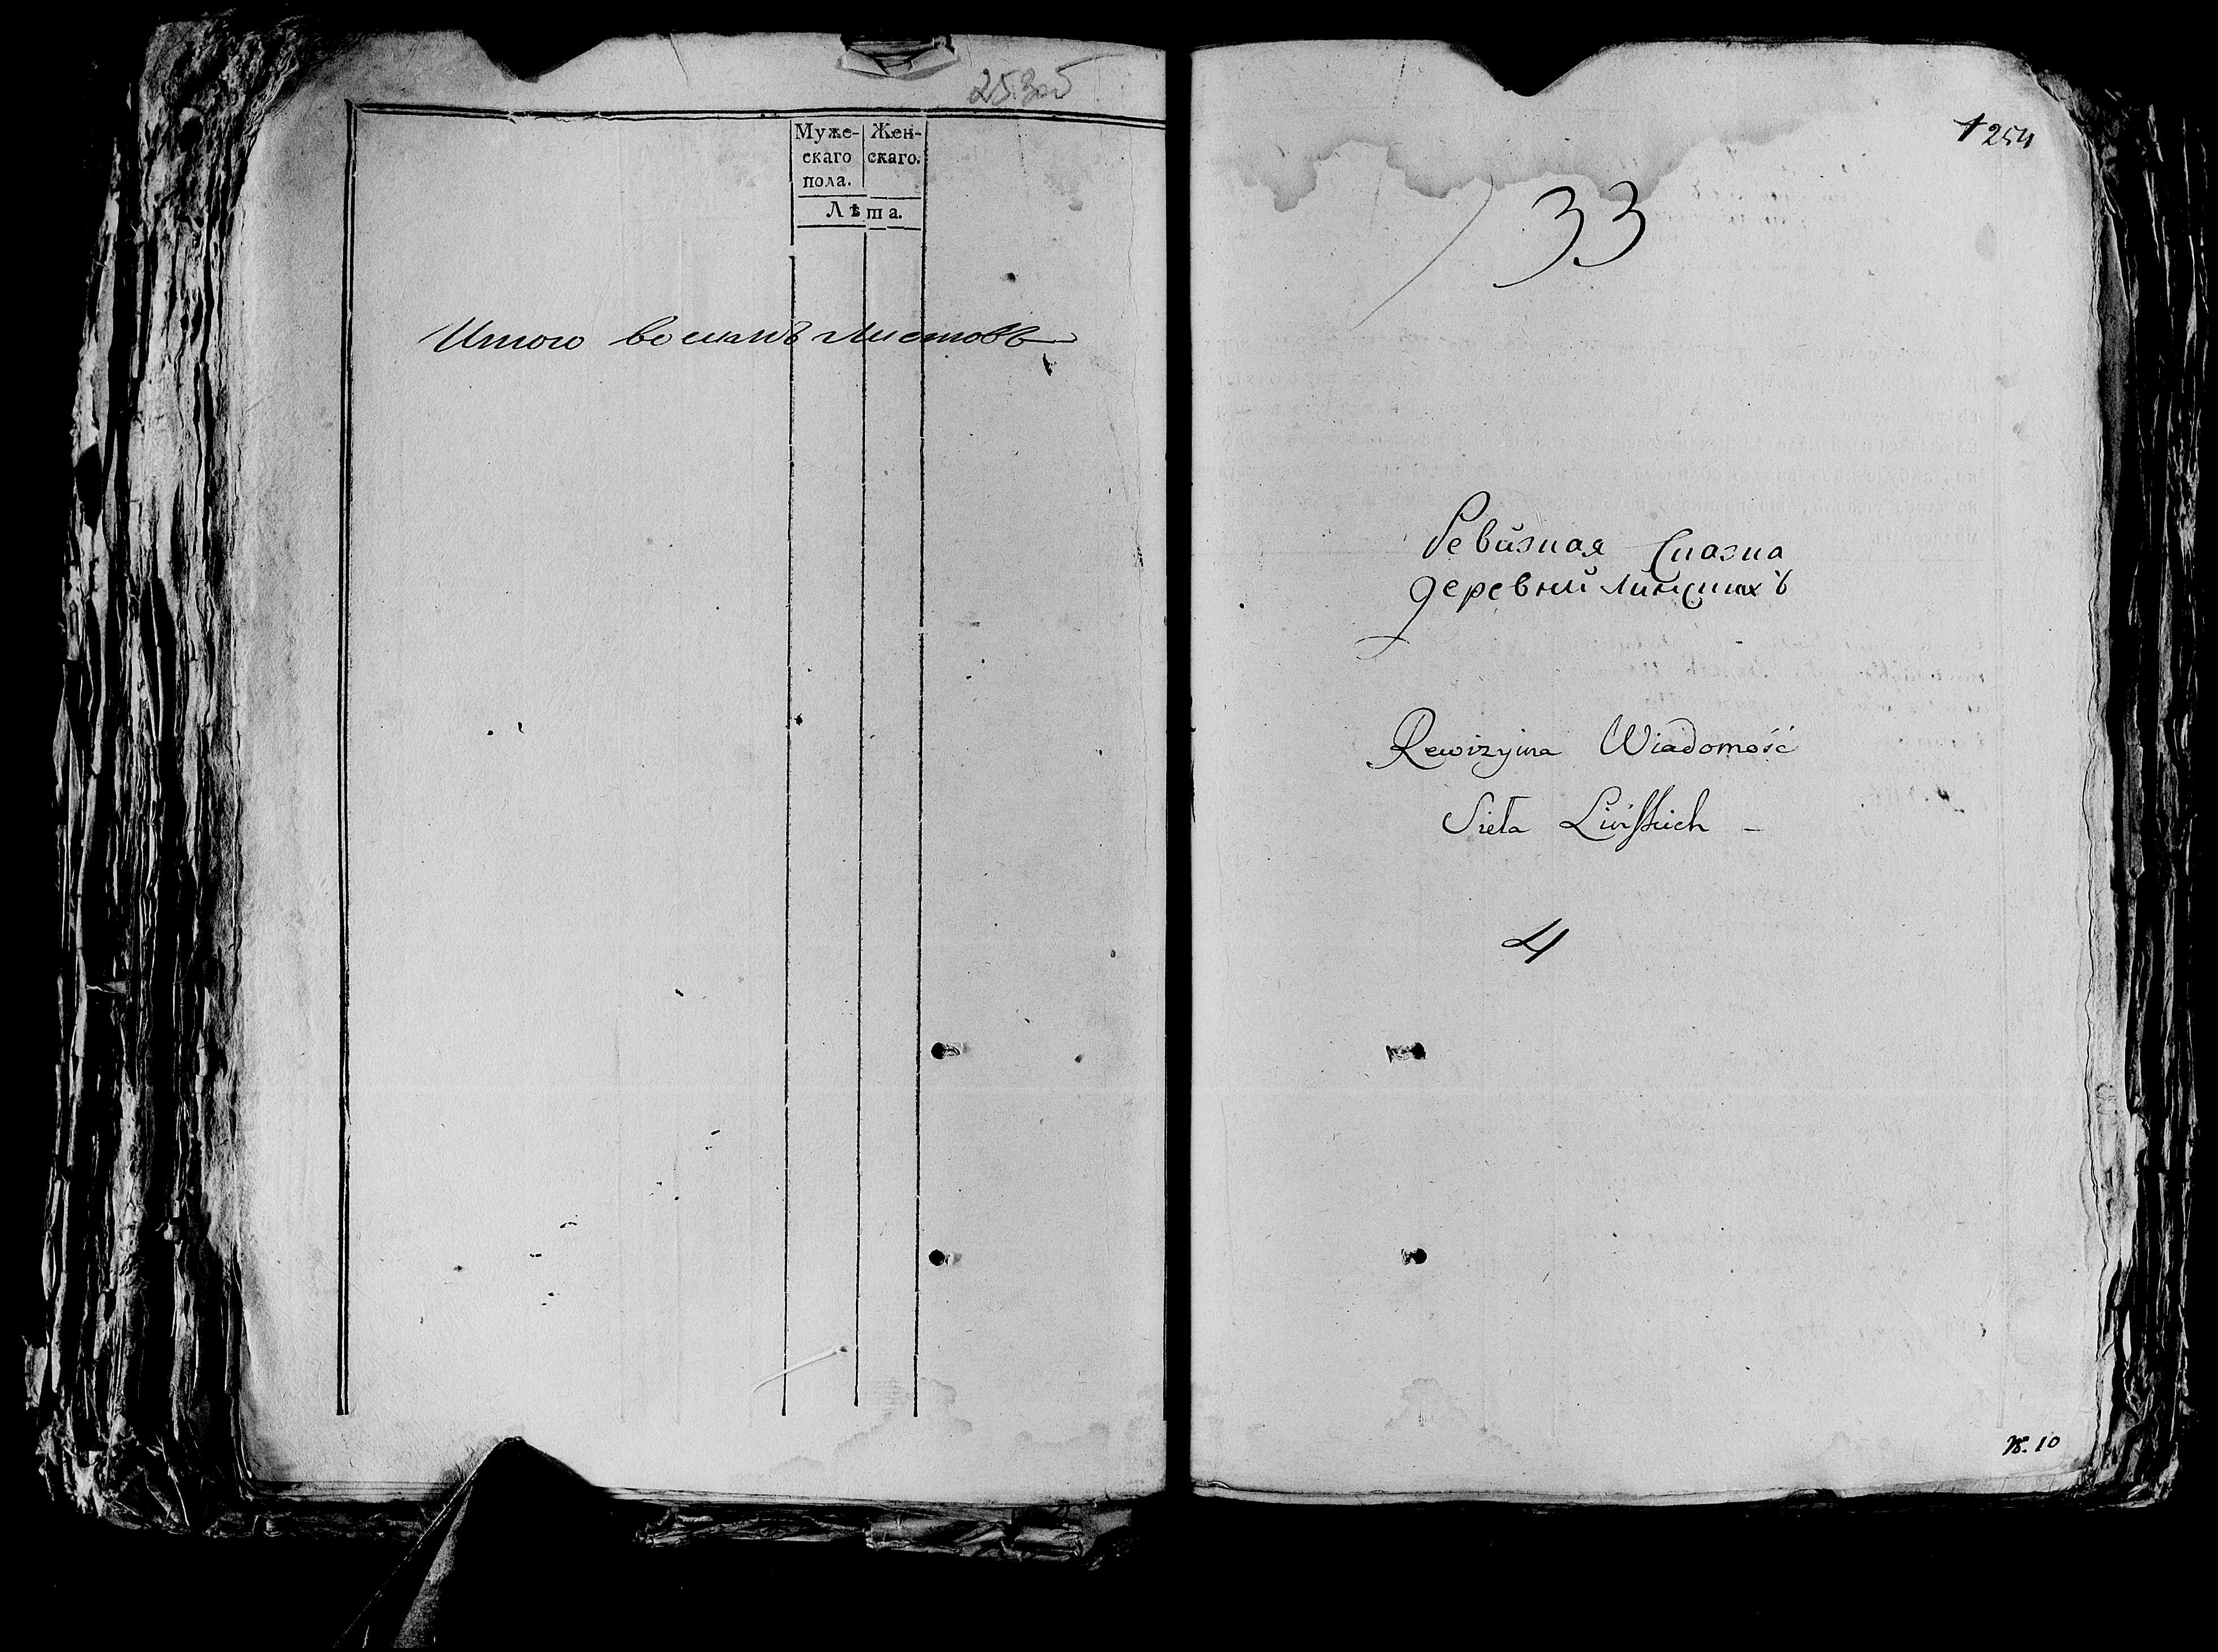 253об
Муже- Жен-
скаго скаго.
пола.
Лѣта.
Итого восемь листовъ
254
33
Ревизная Сказка
деревни Линскихъ
Rewizyina Wiadomość
Sieła Linskich –
4
№. 10